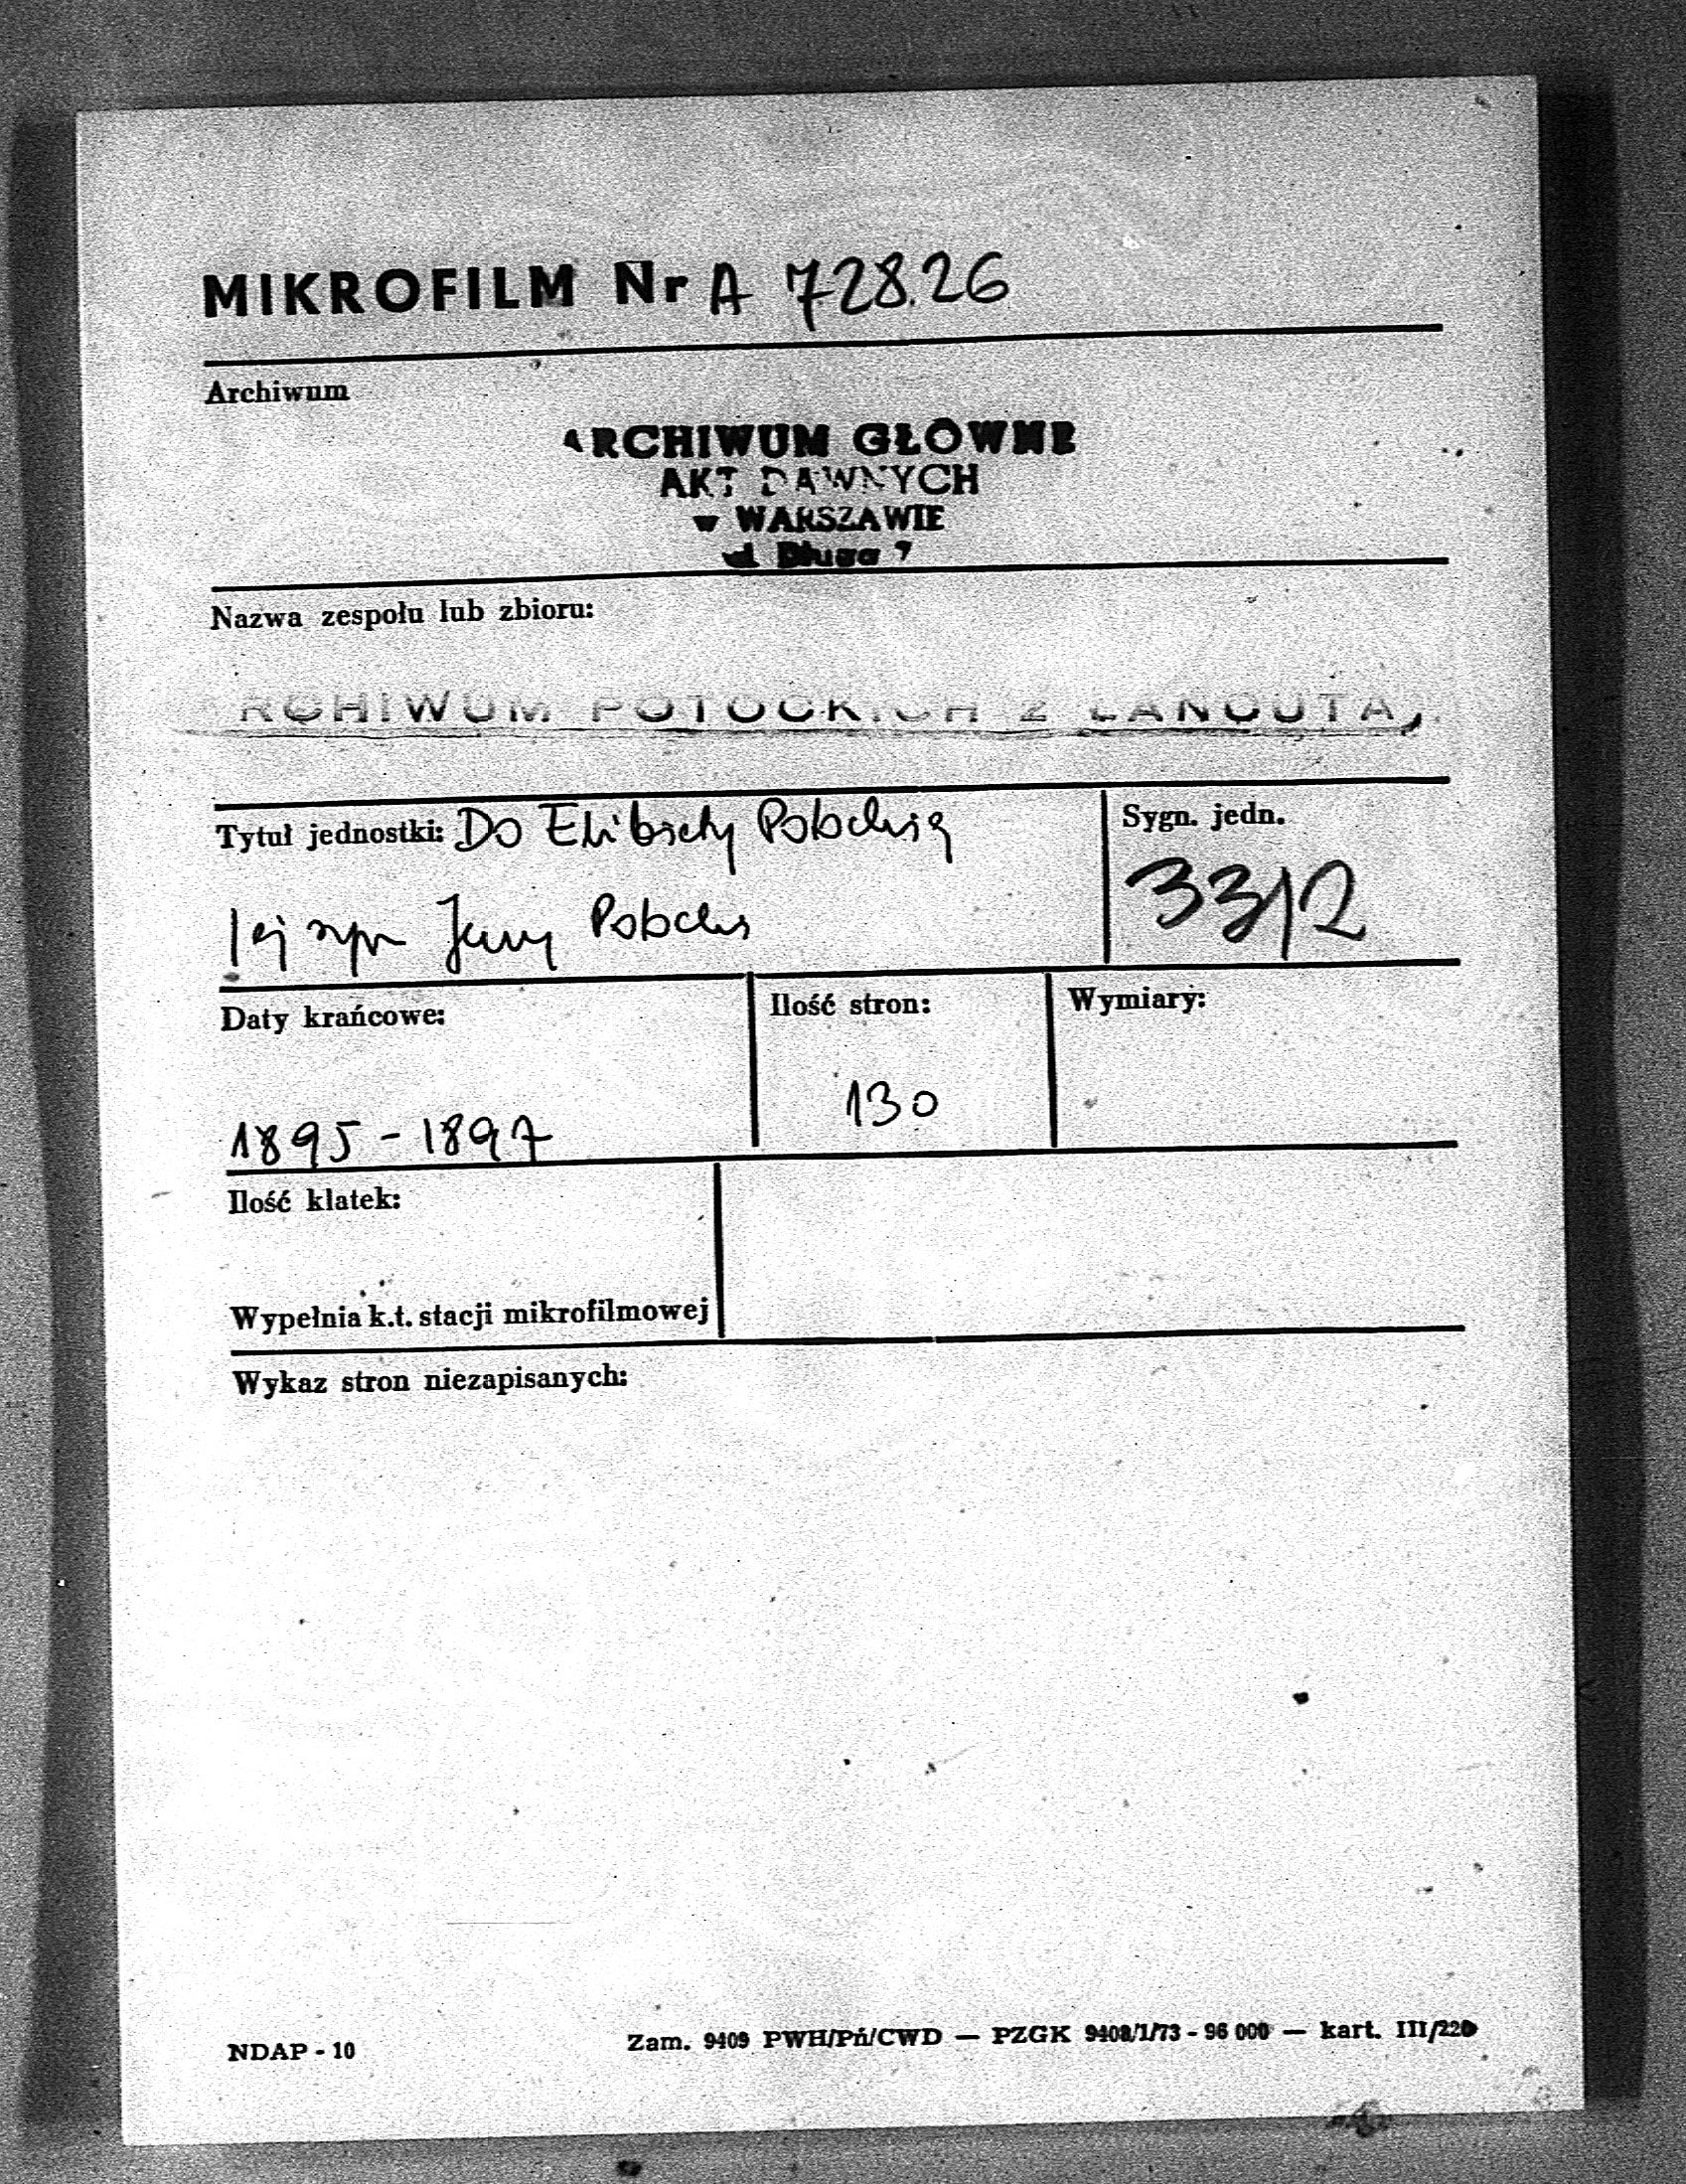 MIKROFILM Nr A 728.26
Archiwum
ARCHIWUM GŁÓWNE
AKT DAWNYCH
w WARSZAWIE
ul Długa 7
Nazwa zespołu lub zbioru:
ARCHIWUM POTOCKICH Z ŁAŃCUTA
Tytuł jednostki: Do Elżbiety Potockiej
Sygn. jedn.
jej syn Jerzy Potocki
3312
Daty krańcowe:
Ilość stron:
Wymiary:
130
1895 - 1897
Ilość klatek:
Wypełnia k.t. stacji mikrofilmowej
Wykaz stron niezapisanych:
NDAP - 10
Zam. 9409 PWH/Pń/CWD — PZGK 9408/1/73 - 96 000 — kart. III/220